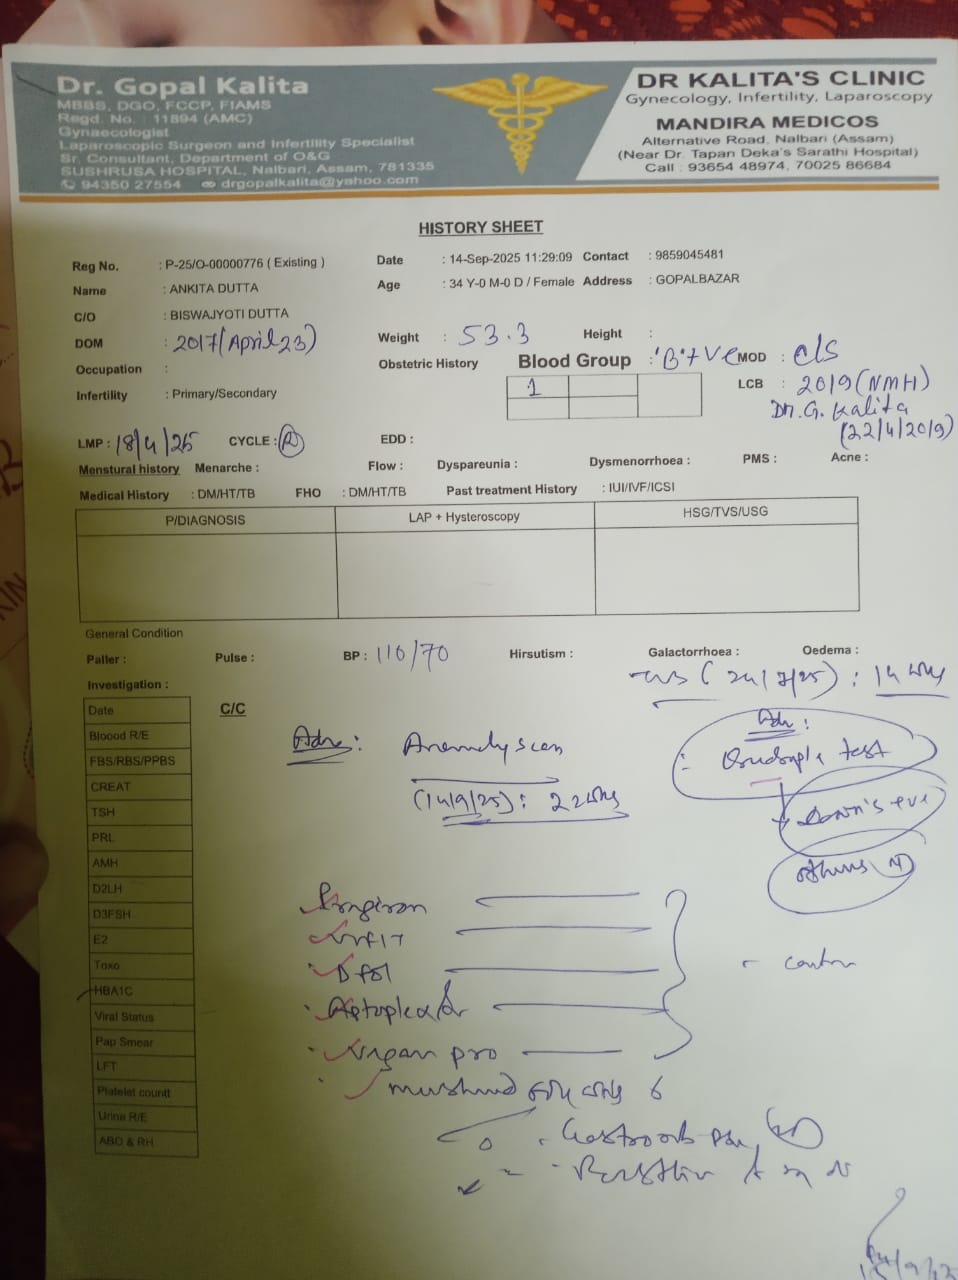 Dr. Gopal Kalita
MBBS, DGO, FCCP, FIAMS
Regd. No. : 11894 (AMC)
Gynaecologist
Laparoscopic Surgeon and Infertility Specialist
Sr. Consultant, Department of O&G
SUSHRUSA HOSPITAL, Nalbari, Assam, 781335
94350 27554 drgopalkalita@yahoo.com
DR KALITA'S CLINIC
Gynecology, Infertility, Laparoscopy
MANDIRA MEDICOS
Alternative Road, Nalbari (Assam)
(Near Dr. Tapan Deka's Sarathi Hospital)
Call : 93654 48974, 70025 86684
HISTORY SHEET
Reg No. : P-25/O-00000776 ( Existing ) Date : 14-Sep-2025 11:29:09 Contact : 9859045481
Name : ANKITA DUTTA Age : 34 Y-0 M-0 D / Female Address : GOPALBAZAR
C/O : BISWAJYOTI DUTTA
DOM : 2017 (April 23) Weight : 53.3 Height :
Occupation : Obstetric History Blood Group : 'B'+ve MOD : C/S
Infertility : Primary/Secondary 1 LCB : 2019 (NMH)
Dr. G. Kalita
(22/4/2019)
LMP : 18/4/25 CYCLE : R EDD :
Menstural history Menarche : Flow : Dyspareunia : Dysmenorrhoea : PMS : Acne :
Medical History : DM/HT/TB FHO : DM/HT/TB Past treatment History : IUI/IVF/ICSI
P/DIAGNOSIS LAP + Hysteroscopy HSG/TVS/USG
General Condition
Paller : Pulse : BP : 110/70 Hirsutism : Galactorrhoea : Oedema :
(24/7/25) : 14 wks
Investigation :
Date C/C
Bloood R/E
FBS/RBS/PPBS
CREAT
TSH
PRL
AMH
D2LH
D3FSH
E2
Toxo
HBA1C
Viral Status
Pap Smear
LFT
Platelet countt
Urine R/E
ABO & RH
Adv : Anomaly scan
(14/9/25) : 22 wks
Adv :
Quadruple test
Down's
others N